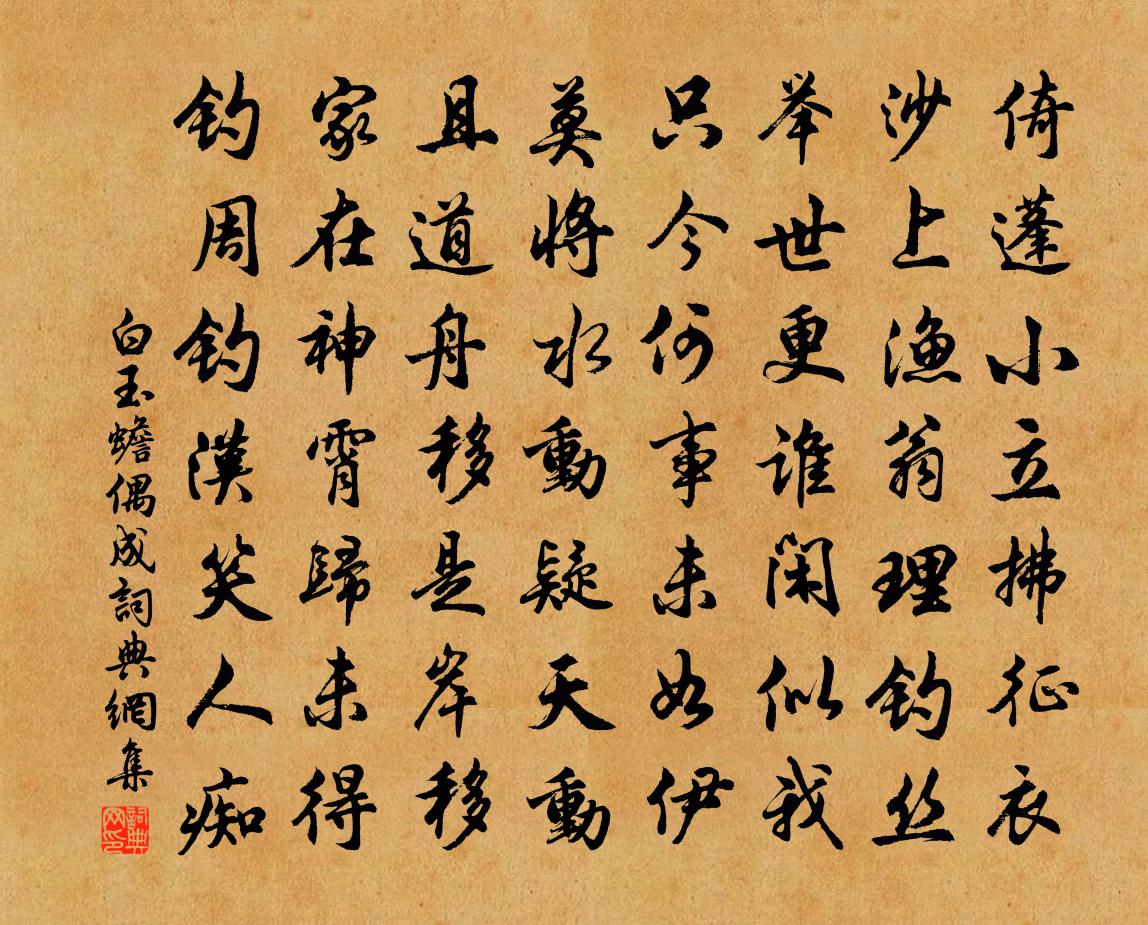 倚蓬小立拂征衣
沙上渔翁理钓丝
举世更谁闲似我
只今何事未如伊
莫将水动疑天动
且道舟移是岸移
家在神霄归未得
钓周钓汉笑人痴
白玉蟾偶成词典网集
词典网印